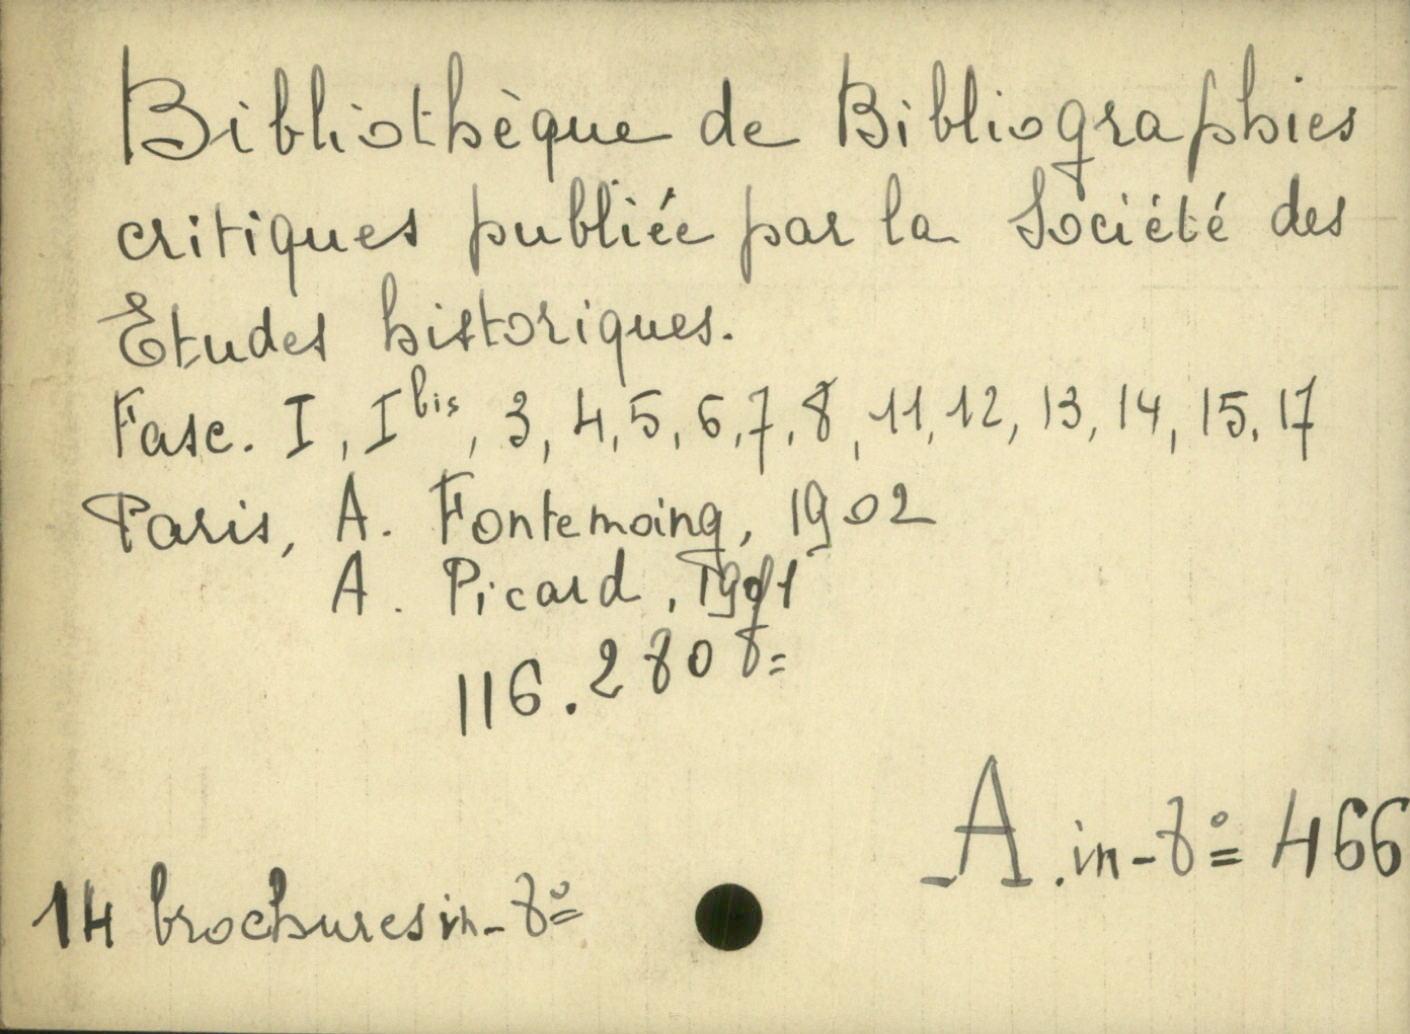 Bibliothèque de Bibliographies
critiques publiée par la Société des
Etudes historiques.
Fasc. I, I bis, 3, 4, 5, 6, 7, 8, 11, 12, 13, 14, 15, 17
Paris, A. Fontemoing, 1902
A. Picard, 1901
116.280 8=
A. in-8° 466
14 brochures in-8°